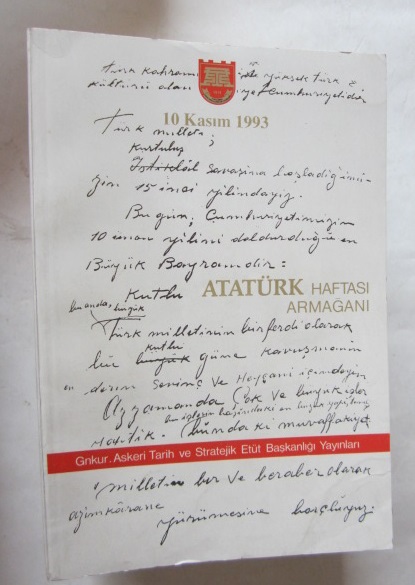 Türk kahramanlığı ile yüksek türk
kültürü olan Cumhuriyetidir
10 Kasım 1993
Türk milleti;
Kurtuluş
İstiklâl Savaşına başladığımı-
zın 15 inci yılındayız.
Bugün, Cumhuriyetimizin
10 uncu yılını doldurduğu en
Büyük Bayramdır:
Kutlu
ATATÜRK HAFTASI
ARMAĞANI
bu anda, büyük
Türk milletinin bir ferdi olarak
kutlu
bu büyük güne kavuşmanın
en derin sevinç ve heyecanı içindeyim
Az zamanda Çok ve büyük işler
Yaptık. Bundaki muvaffakiyeti
Gnkur. Askeri Tarih ve Stratejik Etüt Başkanlığı Yayınları
milletin bir ve beraber olarak
azimkârane
yürümesine borçluyuz.